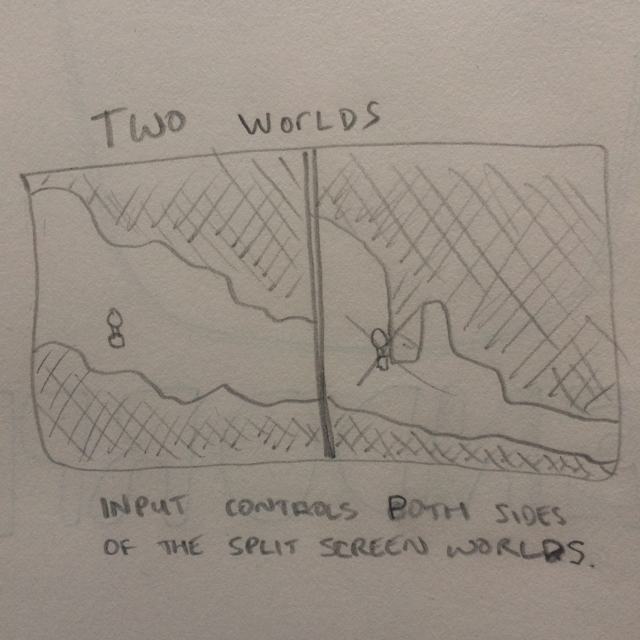 TWO WORLDS
INPUT CONTROLS BOTH SIDES
OF THE SPLIT SCREEN WORLDS.